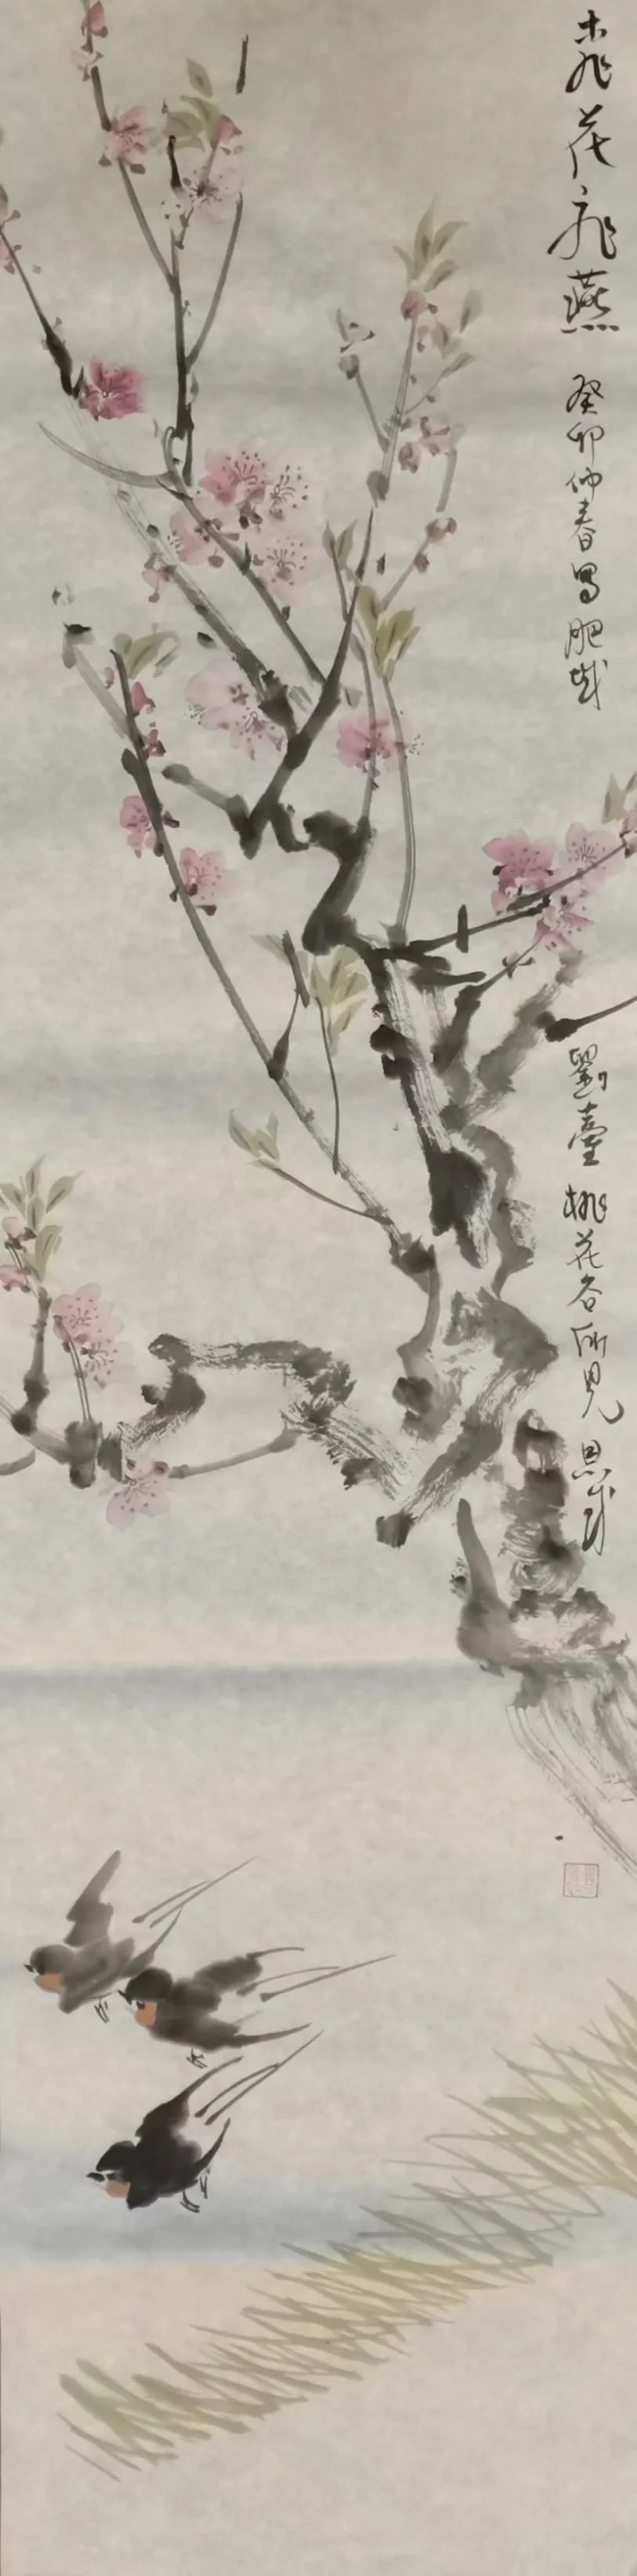 桃花飛燕 癸卯仲春寫肥城
劉臺桃花谷所見 恩成